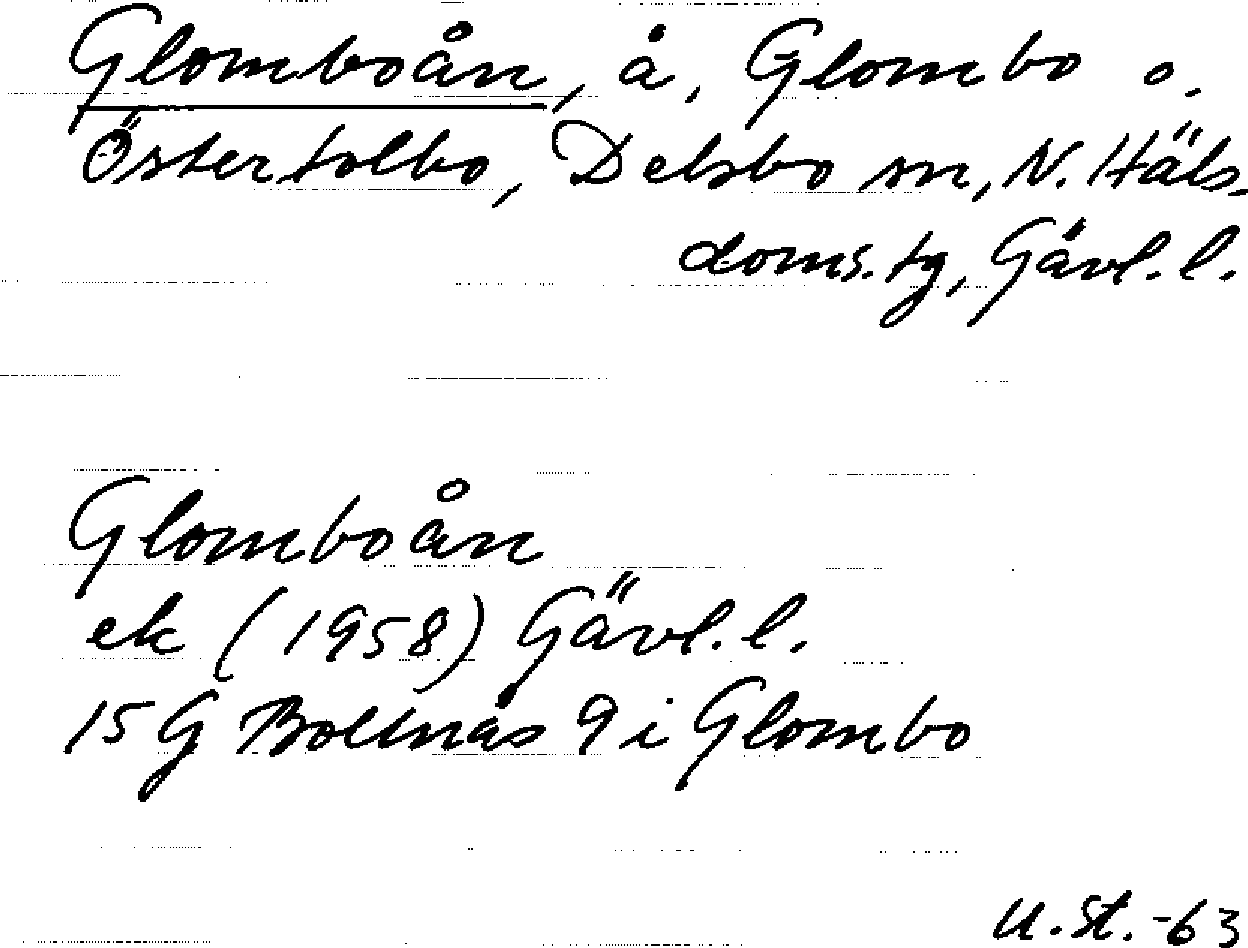 Glomboån, å, Glombo o.
Östertolbo, Delsbo sn, N. Häls.
doms.tg, Gävl. l.
Glomboån
ek (1958) Gävl. l.
15 G Bollnäs 9 i Glombo
U. St. -63